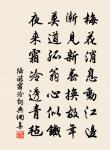 梅花消息動江邊
漸見新春換故年
莫道孤翁心似鐵
夜來霜冷透青氈
陸游霜冷詞典網集